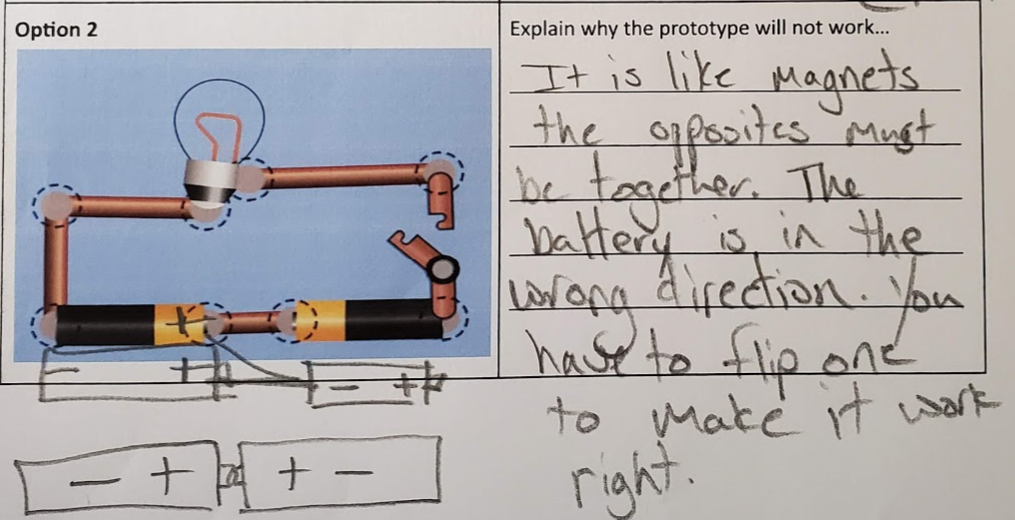 Option 2
Explain why the prototype will not work...
It is like magnets
the opposites must
be together. The
battery is in the
wrong direction. You
have to flip one
to make it work
right.
+
- +
- +
- + + -